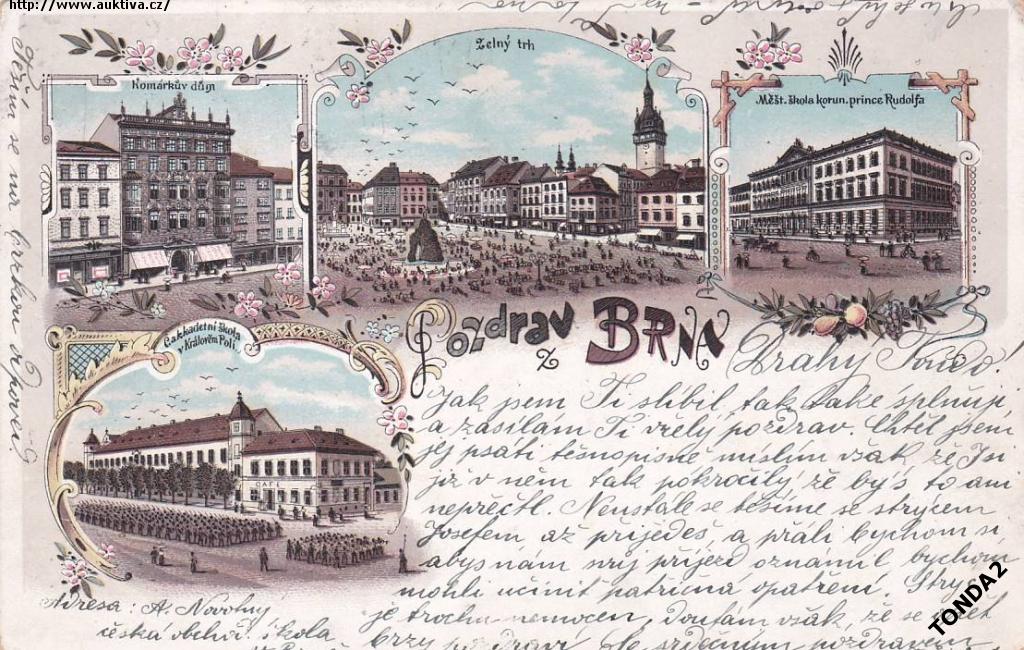 http://www.auktiva.cz/
Komárkův dům
Zelný trh
Měšt. škola korun. prince Rudolfa
C.a.k. kadetní škola
v Králověm Poli
CAFE
Pozdrav z BRNA
Drahý
Jak jsem Ti slíbil, tak také splňuji
a zasílám Ti vřelý pozdrav. Chtěl jsem
jej psáti těsnopisně myslím však, že Ty
již v něm tak pokročilý že bys to ani
nepřečtl. Neustále se těšíme se strýcem
Josefem až přijedeš, a přáli bychom si
abys nám svůj příjezd oznámil, bychom
mohli učinit patřičná opatření. Strýc
je trochu nemocen, doufám však, že se opět
brzy pozdraví. Se srdečným pozdravem
Adresa: A. Novotný
česká obchod. škola
Těším se na brzkou odpověď.
TONDA2